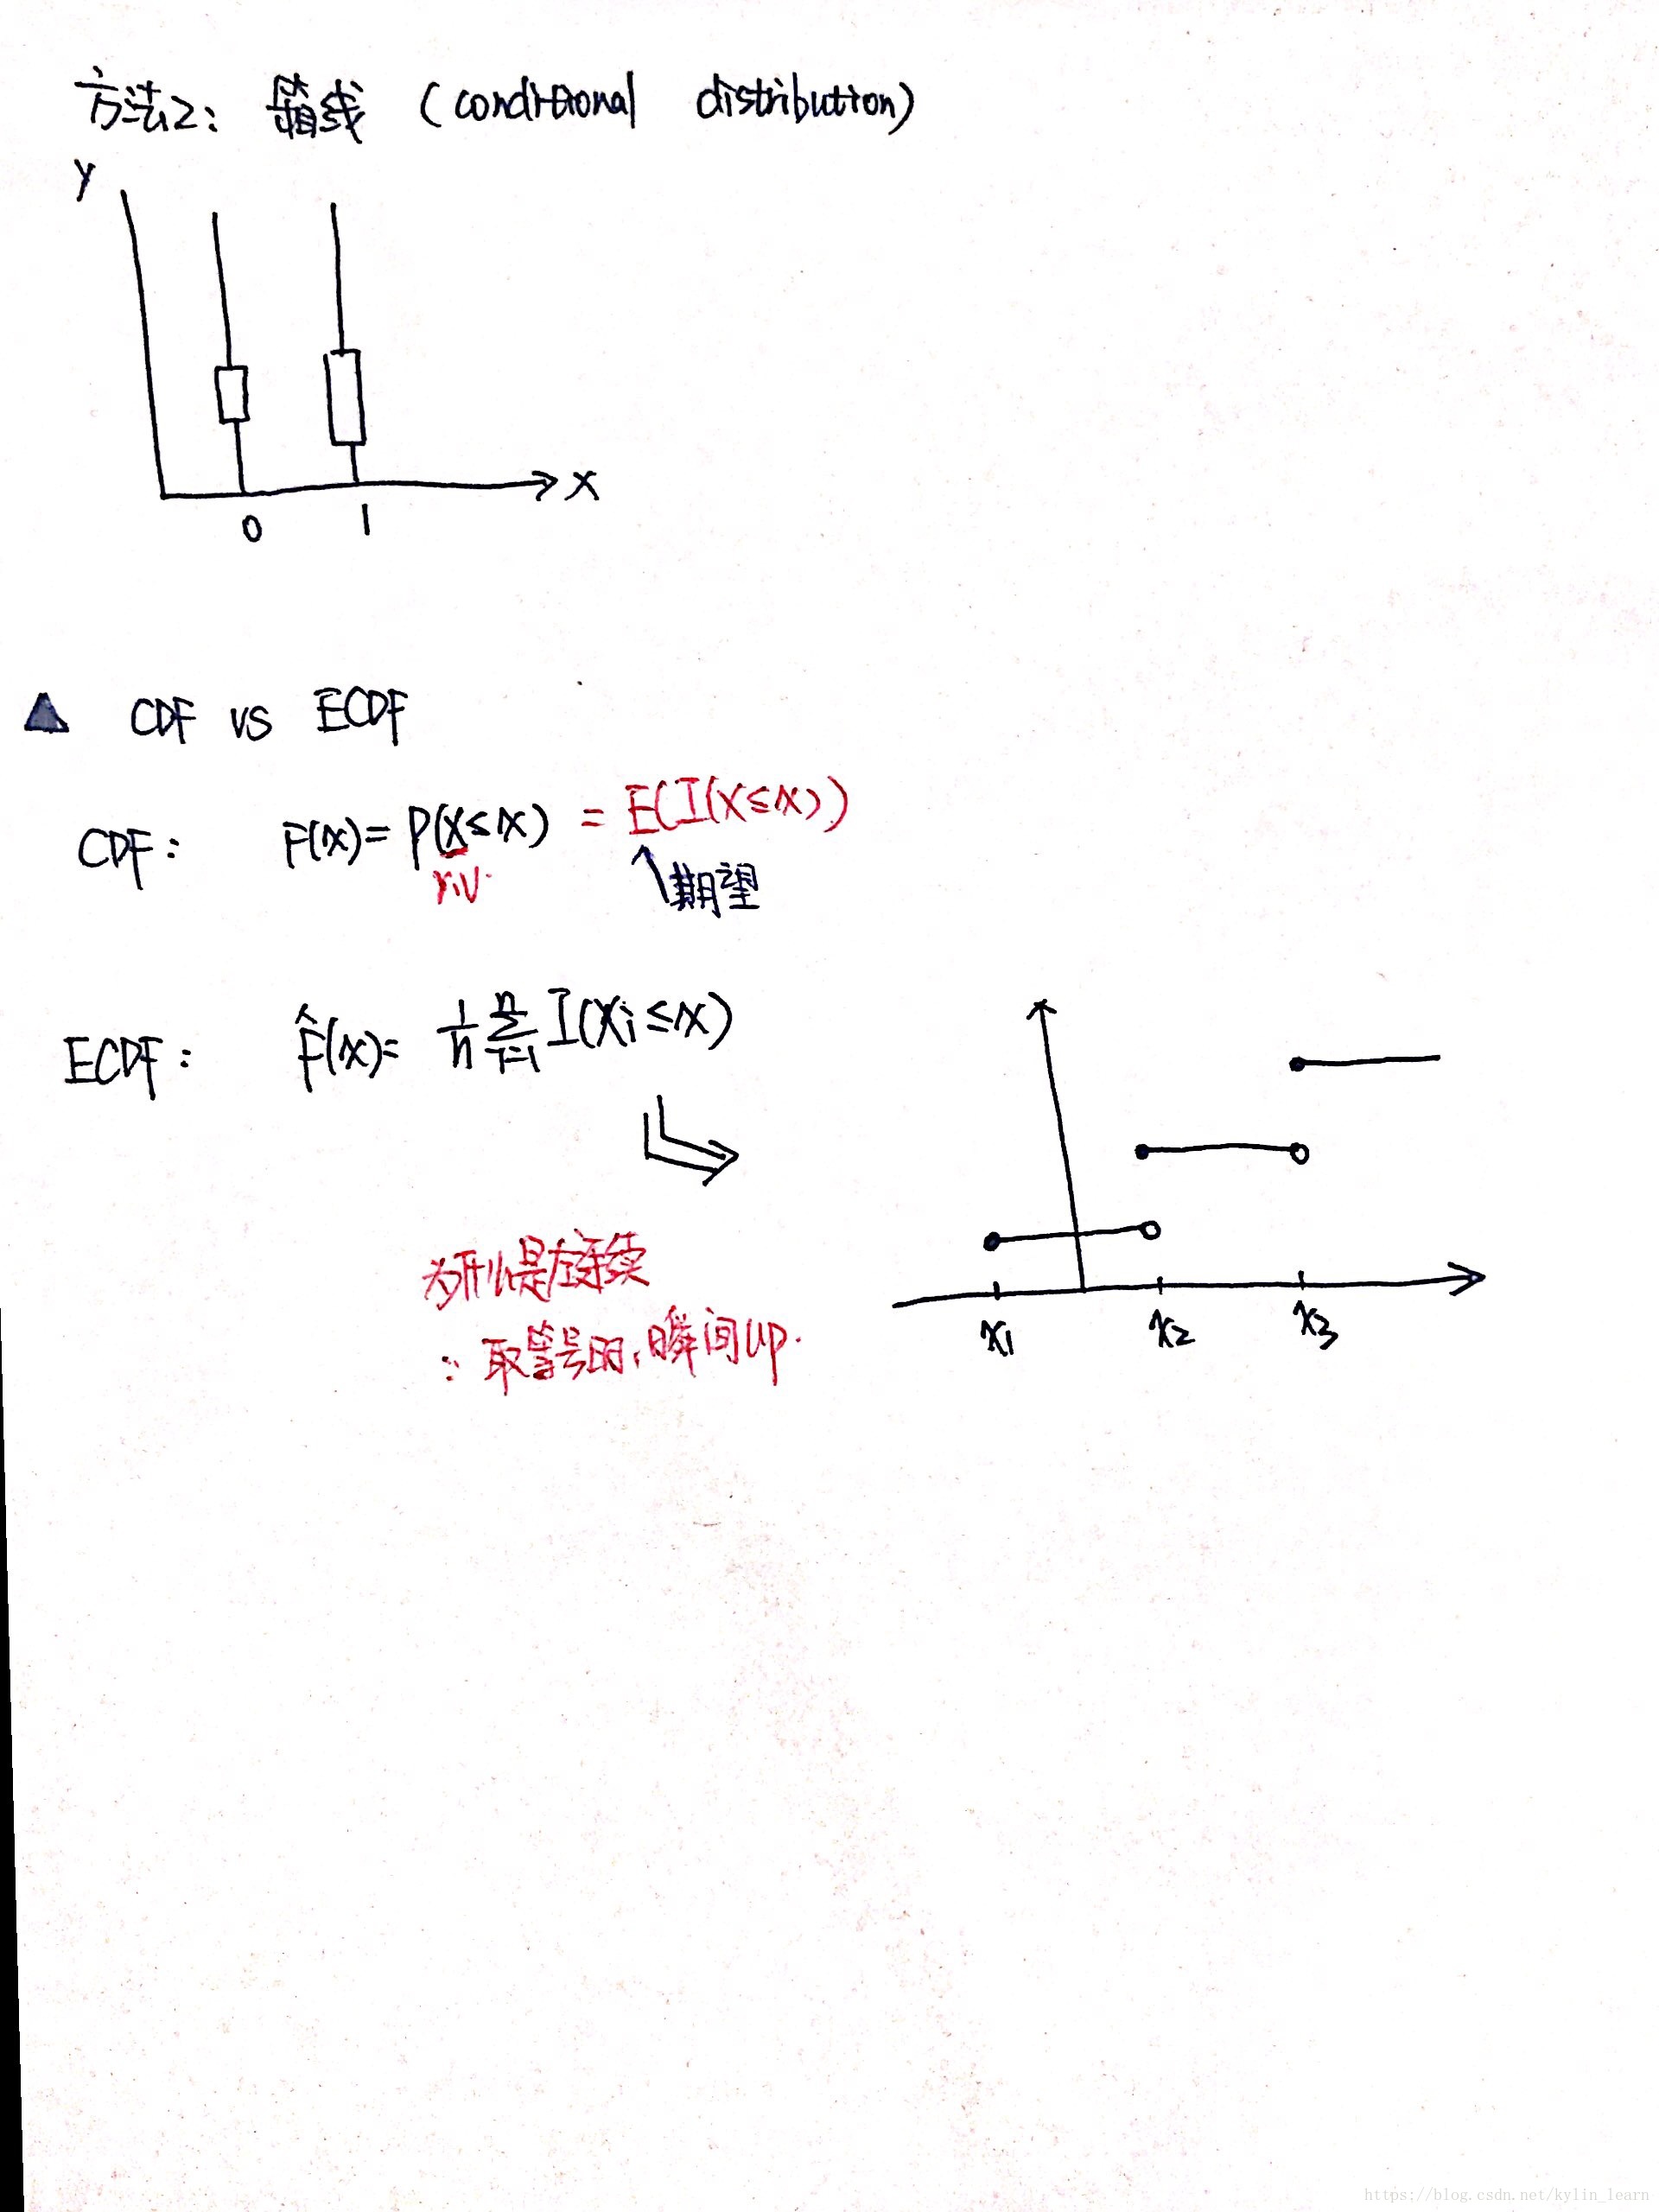 方法2: 箱线 (conditional distribution)
y
x
0 1
▲ CDF vs ECDF
CDF: F(x) = P(X≤x) = E(I(X≤x))
r.v. 期望
ECDF: F̂(x) = 1/n Σ_{i=1}^{n} I(Xi≤x)
为什么是左连续
∵ 取等号时,瞬间up.
x1 x2 x3
https://blog.csdn.net/kylin_learn